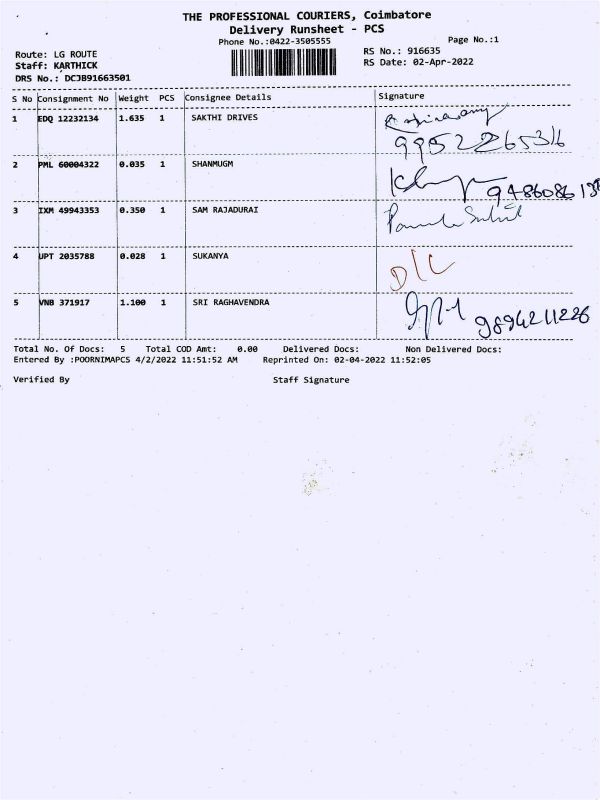 THE PROFESSIONAL COURIERS, Coimbatore
Delivery Runsheet - PCS
Phone No.:0422-3505555
Page No.:1
Route: LG ROUTE
RS No.: 916635
Staff: KARTHICK
RS Date: 02-Apr-2022
DRS No.: DCJB91663501
S No Consignment No Weight PCS Consignee Details Signature
1 EDQ 12232134 1.635 1 SAKTHI DRIVES
9952265316
2 PML 60004322 0.035 1 SHANMUGM
3 IXM 49943353 0.350 1 SAM RAJADURAI
4 UPT 2035788 0.028 1 SUKANYA D/L
5 VNB 371917 1.100 1 SRI RAGHAVENDRA
9894211226
Total No. Of Docs: 5 Total COD Amt: 0.00 Delivered Docs: Non Delivered Docs:
Entered By :POORNIMAPCS 4/2/2022 11:51:52 AM Reprinted On: 02-04-2022 11:52:05
Verified By Staff Signature